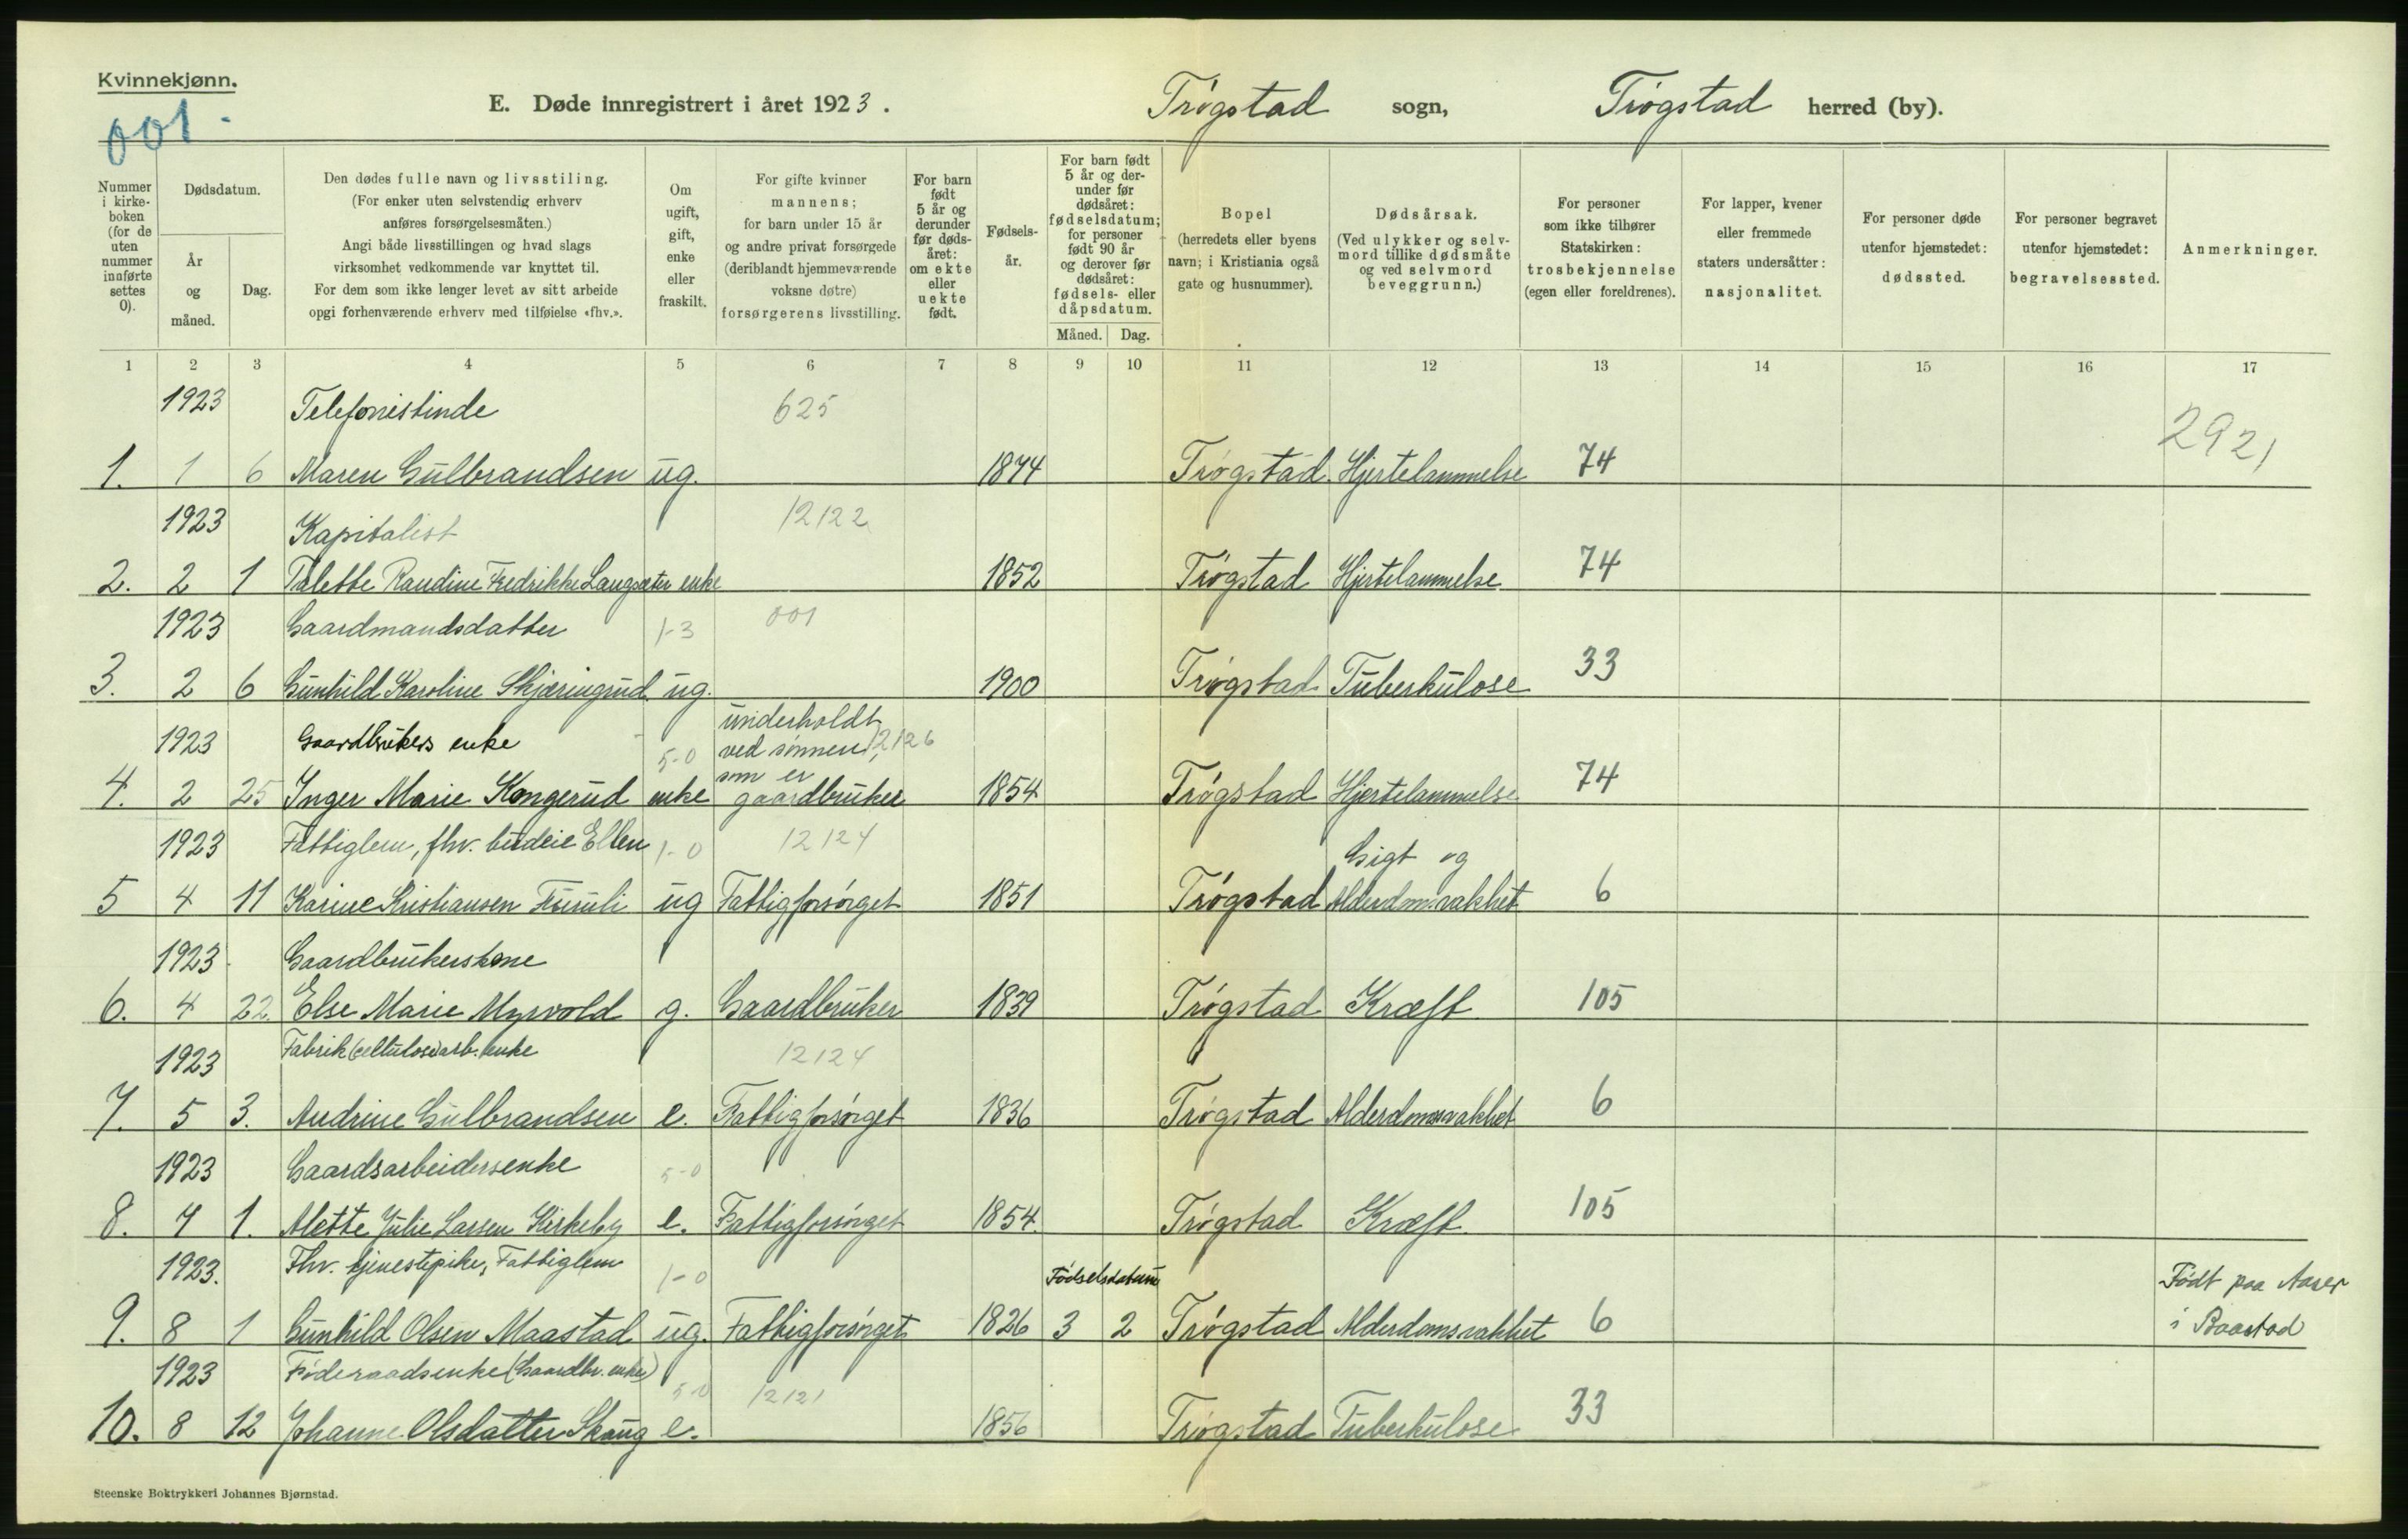 Kvinnekjønn.
001.
E. Døde innregistrert i året 1923.
Trøgstad sogn, Trøgstad herred (by).
Nummer i kirke-boken (for de uten nummer innførte settes 0).
Dødsdatum.
År og måned.
Dag.
Den dødes fulle navn og livsstiling.
(For enker uten selvstendig erhverv
anføres forsørgelsesmåten.)
Angi både livsstillingen og hvad slags
virksomhet vedkommende var knyttet til.
For dem som ikke lenger levet av sitt arbeide
opgi forhenværende erhverv med tilføielse «fhv.».
Om ugift, gift, enke eller fraskilt.
For gifte kvinner
mannens;
for barn under 15 år
og andre privat forsørgede
(deriblandt hjemmeværende
voksne døtre)
forsørgerens livsstilling.
For barn født 5 år og derunder før døds-året: om ekte eller uekte født.
Fødsels-år.
For barn født 5 år og der-under før dødsåret: fødselsdatum; for personer født 90 år og derover før dødsåret: fødsels- eller dåpsdatum.
Måned. Dag.
Bopel
(herredets eller byens
navn; i Kristiania også
gate og husnummer).
Dødsårsak.
(Ved ulykker og selv-
mord tillike dødsmåte
og ved selvmord
beveggrunn.)
For personer
som ikke tilhører
Statskirken:
trosbekjennelse
(egen eller foreldrenes).
For lapper, kvener
eller fremmede
staters undersåtter:
nasjonalitet.
For personer døde
utenfor hjemstedet:
dødssted.
For personer begravet
utenfor hjemstedet:
begravelsessted.
Anmerkninger.
1 2 3 4 5 6 7 8 9 10 11 12 13 14 15 16 17
1923 Telefonistinde 625
2921
1. 1 6 Maren Gulbrandsen ug. 1874 Trøgstad. Hjertelammelse 74
1923 Kapitalist 12122
2. 2 1 Talette Randine Fredrikke Langsæter enke 1852 Trøgstad Hjertelammelse 74
1923 Gaardmandsdatter 1-3 001
3. 2 6 Gunhild Karoline Skjæringrud ug. 1900 Trøgstad Tuberkulose 33
1923 Gaardbrukers enke 5-0 underholdt
ved sønnen, 12126
som er
4. 2 25 Inger Marie Kongerud enke gaardbruker 1854 Trøgstad Hjertelammelse 74
1923 Fattiglem, fhv. budeie Ellen 1-0 12124 Gigt og
5 4 11 Karine Kristiansen Furuli ug Fattigforsørget 1851 Trøgstad Alderdomsvakhet 6
1923 Gaardbrukerskone
6. 4 22 Else Marie Myrvold g. Gaardbruker 1839 Trøgstad Kræft 105
1923 Fabrik(cellulose)arb. enke 12124
7. 5 3. Andrine Gulbrandsen e. Fattigforsørget 1836 Trøgstad Alderdomsvakhet 6
1923 Gaardsarbeidersenke 5-0
8. 7 1. Alette Julie Larsen Kirkeby e. Fattigforsørget 1854. Trøgstad Kræft 105
1923. Fhv. tjenestepike, Fattiglem 1-0 Fødselsdatum Født paa Aaser
9. 8 1 Gunhild Olsen Maastad ug. Fattigforsørget 1826 3 2 Trøgstad Alderdomsvakhet 6 i Baastad
1923 Føderaadsenke (Gaardbr. enke) 5-0 12121
10. 8 12 Johanne Olsdatter Skaug e. 1856 Trøgstad Tuberkulose 33
Steenske Boktrykkeri Johannes Bjørnstad.